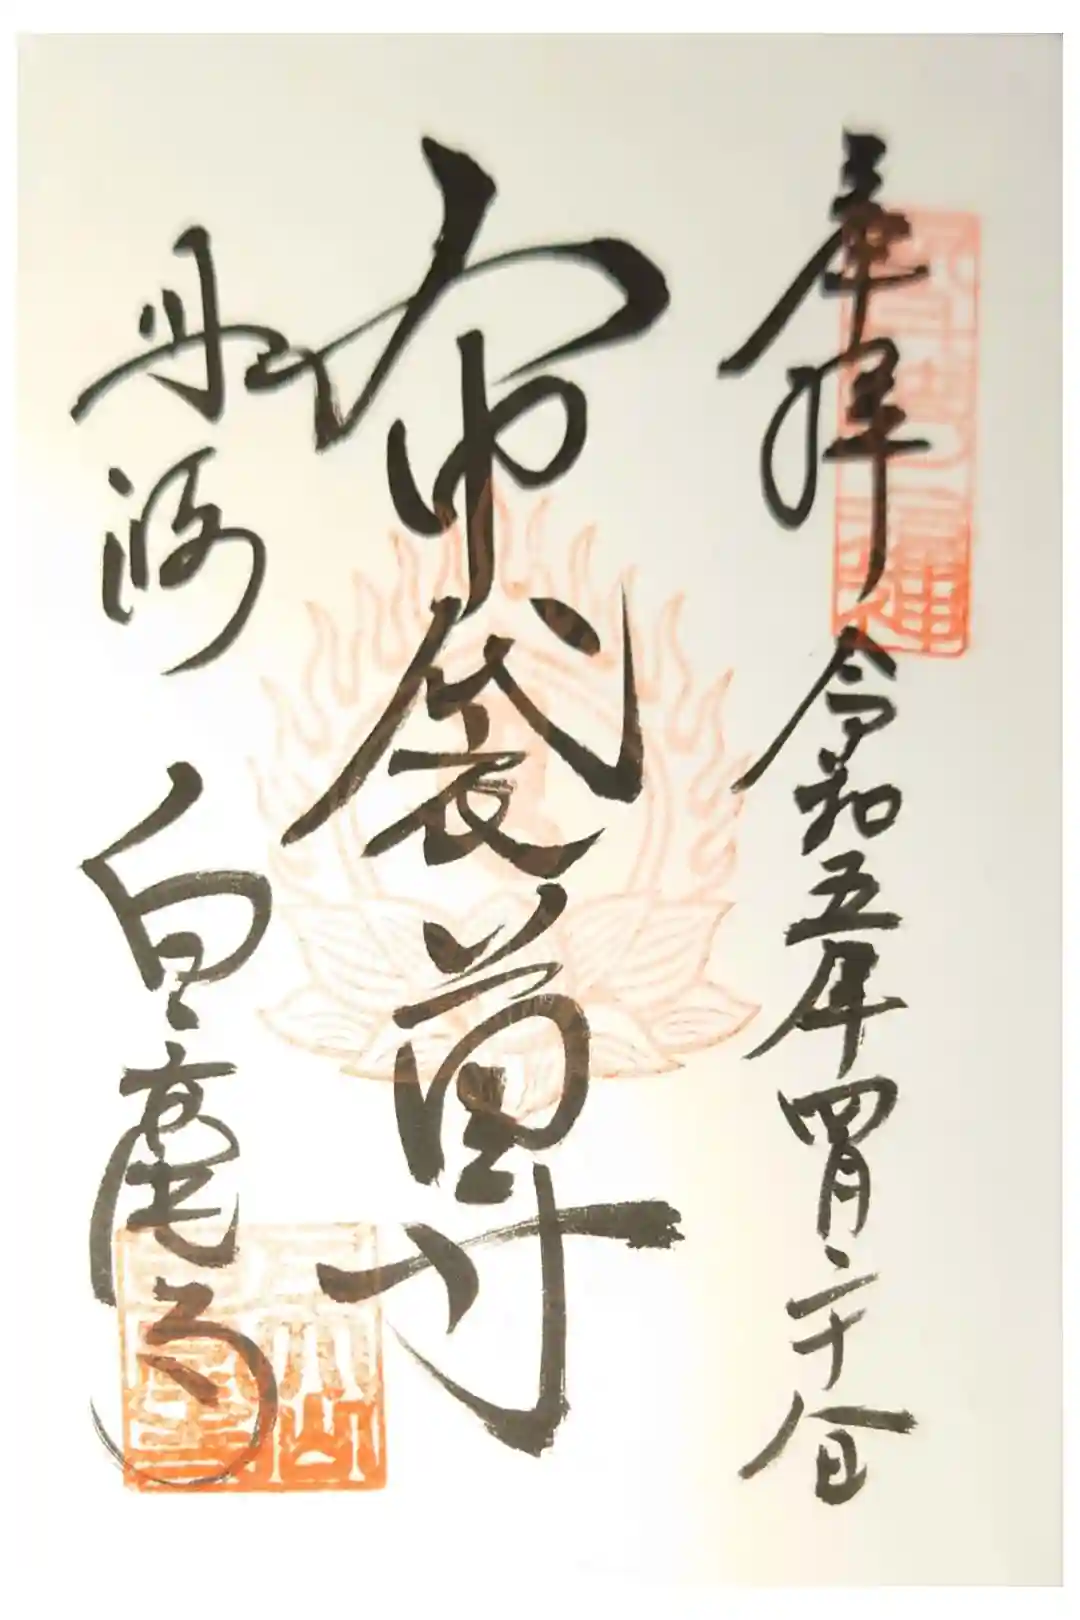 奉拝 令和五年四月二十八日
布袋尊
丹波 白毫寺